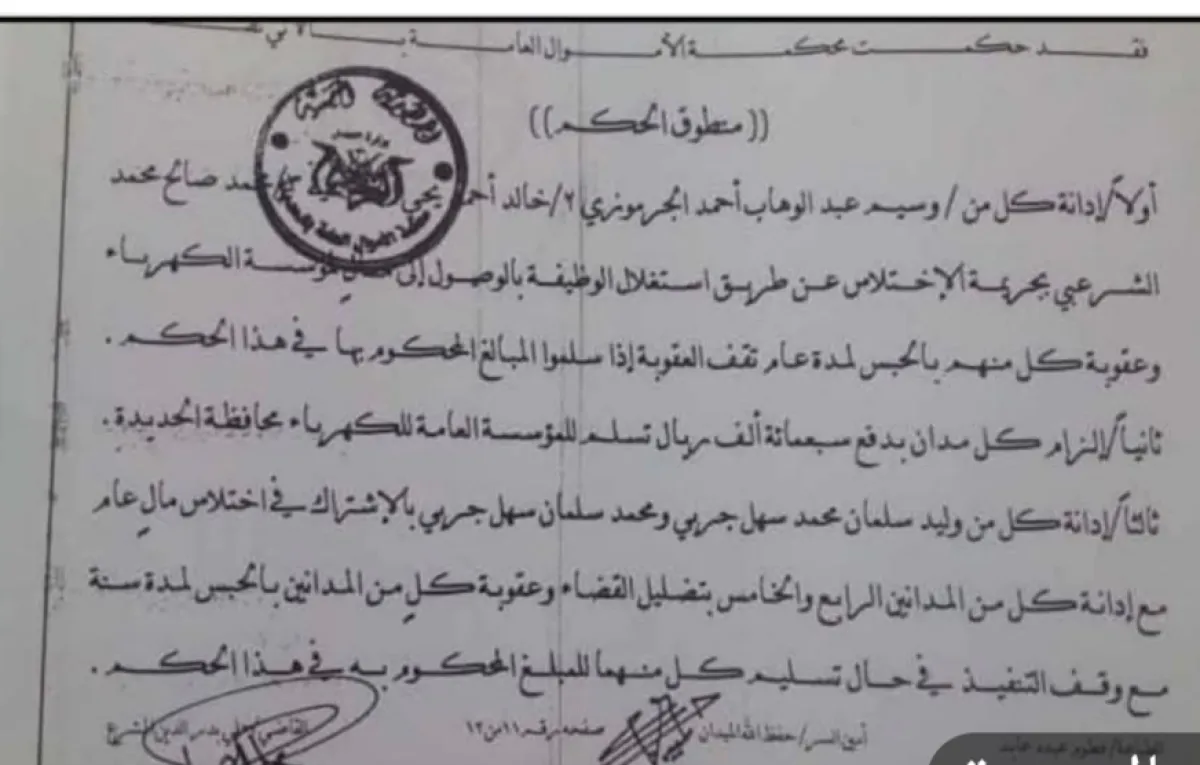 فقد حكمت محكمة الأموال العامة بالآتي
((منطوق الحكم))
أولاً/إدانة كل من / وسيم عبد الوهاب أحمد الجرموزي ٢/خالد أحمد يحيى صالح محمد
الشرعبي بجريمة الإختلاس عن طريق استغلال الوظيفة بالوصول إلى لمؤسسة الكهرباء
وعقوبة كل منهم بالحبس لمدة عام تقف العقوبة إذا سلموا المبالغ المحكوم بها في هذا الحكم .
ثانياً/إلزام كل مدان بدفع سبعمائة ألف ريال تسلم للمؤسسة العامة للكهرباء محافظة الحديدة .
ثالثاً/إدانة كل من وليد سلمان محمد سهل جربي ومحمد سلمان سهل جربي بالإشتراك في اختلاس مالٍ عام
مع إدانة كل من المدانين الرابع والخامس بتضليل القضاء وعقوبة كلٍ من المدانين بالحبس لمدة سنة
مع وقف التنفيذ في حال تسليم كل منهما للمبلغ المحكوم به في هذا الحكم .
أمين السر/ حفظ الله الميدان صفحة رقم ١١ من ١٢ القاضي/
الطباعة/ فطوم عبده عابد
الجمهورية اليمنية
وزارة العدل